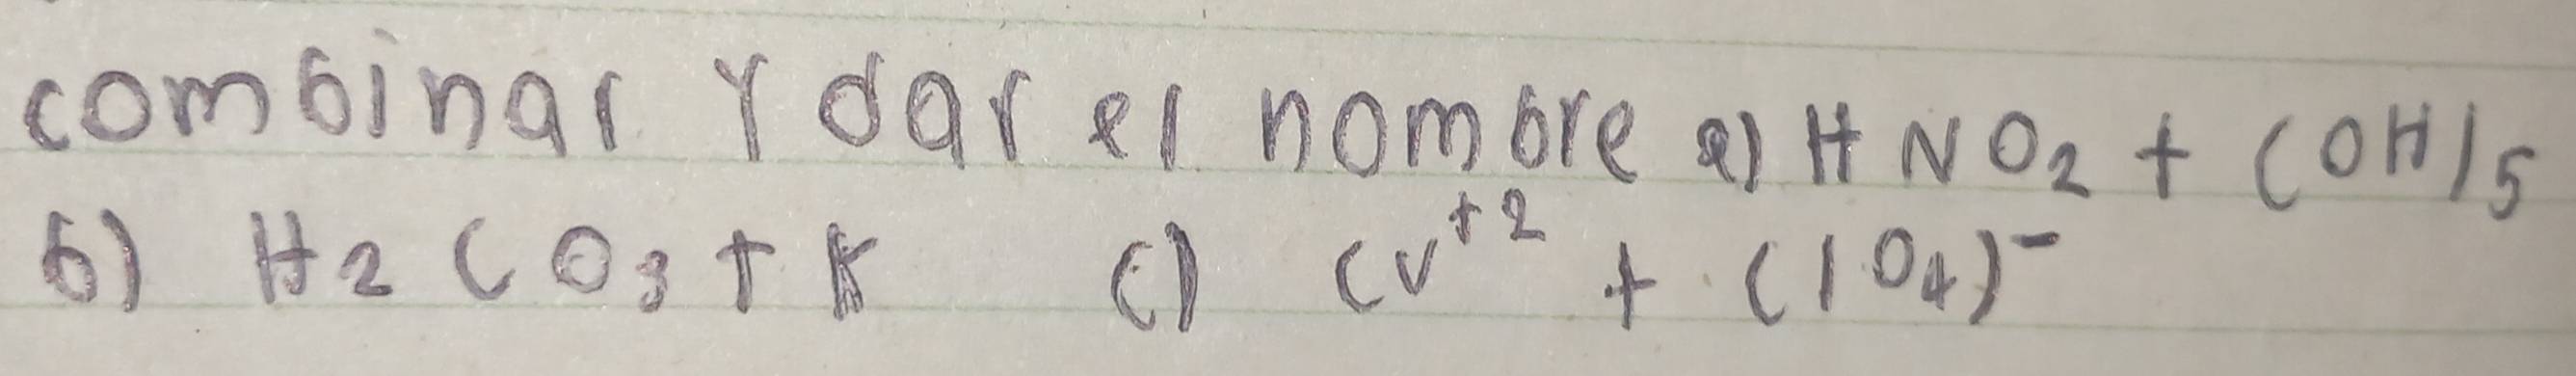 combinar Y dar el nombre a) HNO2 + (OH)5
b) H2CO3 + K c) Cu+2 + (IO4)-